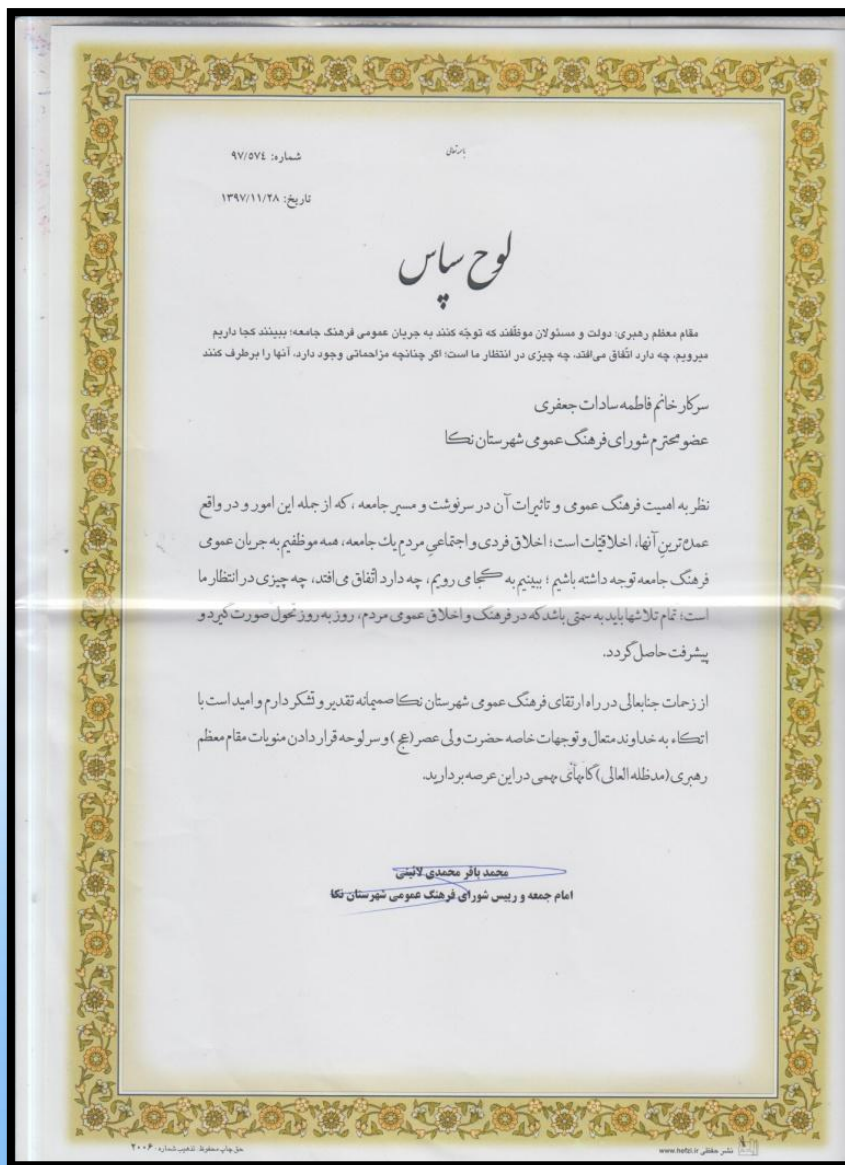 باسمه تعالی
شماره: ۹۷/۵۷٤
تاریخ: ۱۳۹۷/۱۱/۲۸
لوح سپاس
مقام معظم رهبری: دولت و مسئولان موظّفند که توجّه کنند به جریان عمومی فرهنگ جامعه؛ ببینند کجا داریم
میرویم، چه دارد اتّفاق می‌افتد، چه چیزی در انتظار ما است؛ اگر چنانچه مزاحماتی وجود دارد، آنها را برطرف کنند
سرکار خانم فاطمه سادات جعفری
عضو محترم شورای فرهنگ عمومی شهرستان نکا
نظر به اهمیت فرهنگ عمومی و تاثیرات آن در سرنوشت و مسیر جامعه ، که از جمله این امور و در واقع
عمده‌ترینِ آنها، اخلاقیّات است؛ اخلاق فردی و اجتماعیِ مردمِ یك جامعه، همه موظفیم به جریان عمومی
فرهنگ جامعه توجه داشته باشیم ؛ ببینیم به کجا می رویم، چه دارد اتّفاق می افتد، چه چیزی در انتظار ما
است؛ تمام تلاشها باید به سمتی باشد که در فرهنگ و اخلاق عمومی مردم، روز به روز تحول صورت گیرد و
پیشرفت حاصل گردد.
از زحمات جنابعالی در راه ارتقای فرهنگ عمومی شهرستان نکا صمیمانه تقدیر و تشکر دارم و امید است با
اتکاء به خداوند متعال و توجهات خاصه حضرت ولی عصر(عج) و سر لوحه قرار دادن منویات مقام معظم
رهبری(مدظله العالی) گامهای مهمی در این عرصه بردارید.
محمد باقر محمدی لائینی
امام جمعه و رییس شورای فرهنگ عمومی شهرستان نکا
نشر حفظی www.hefzi.ir
حق چاپ محفوظ. تذهیب شماره: ۲۰۰۶